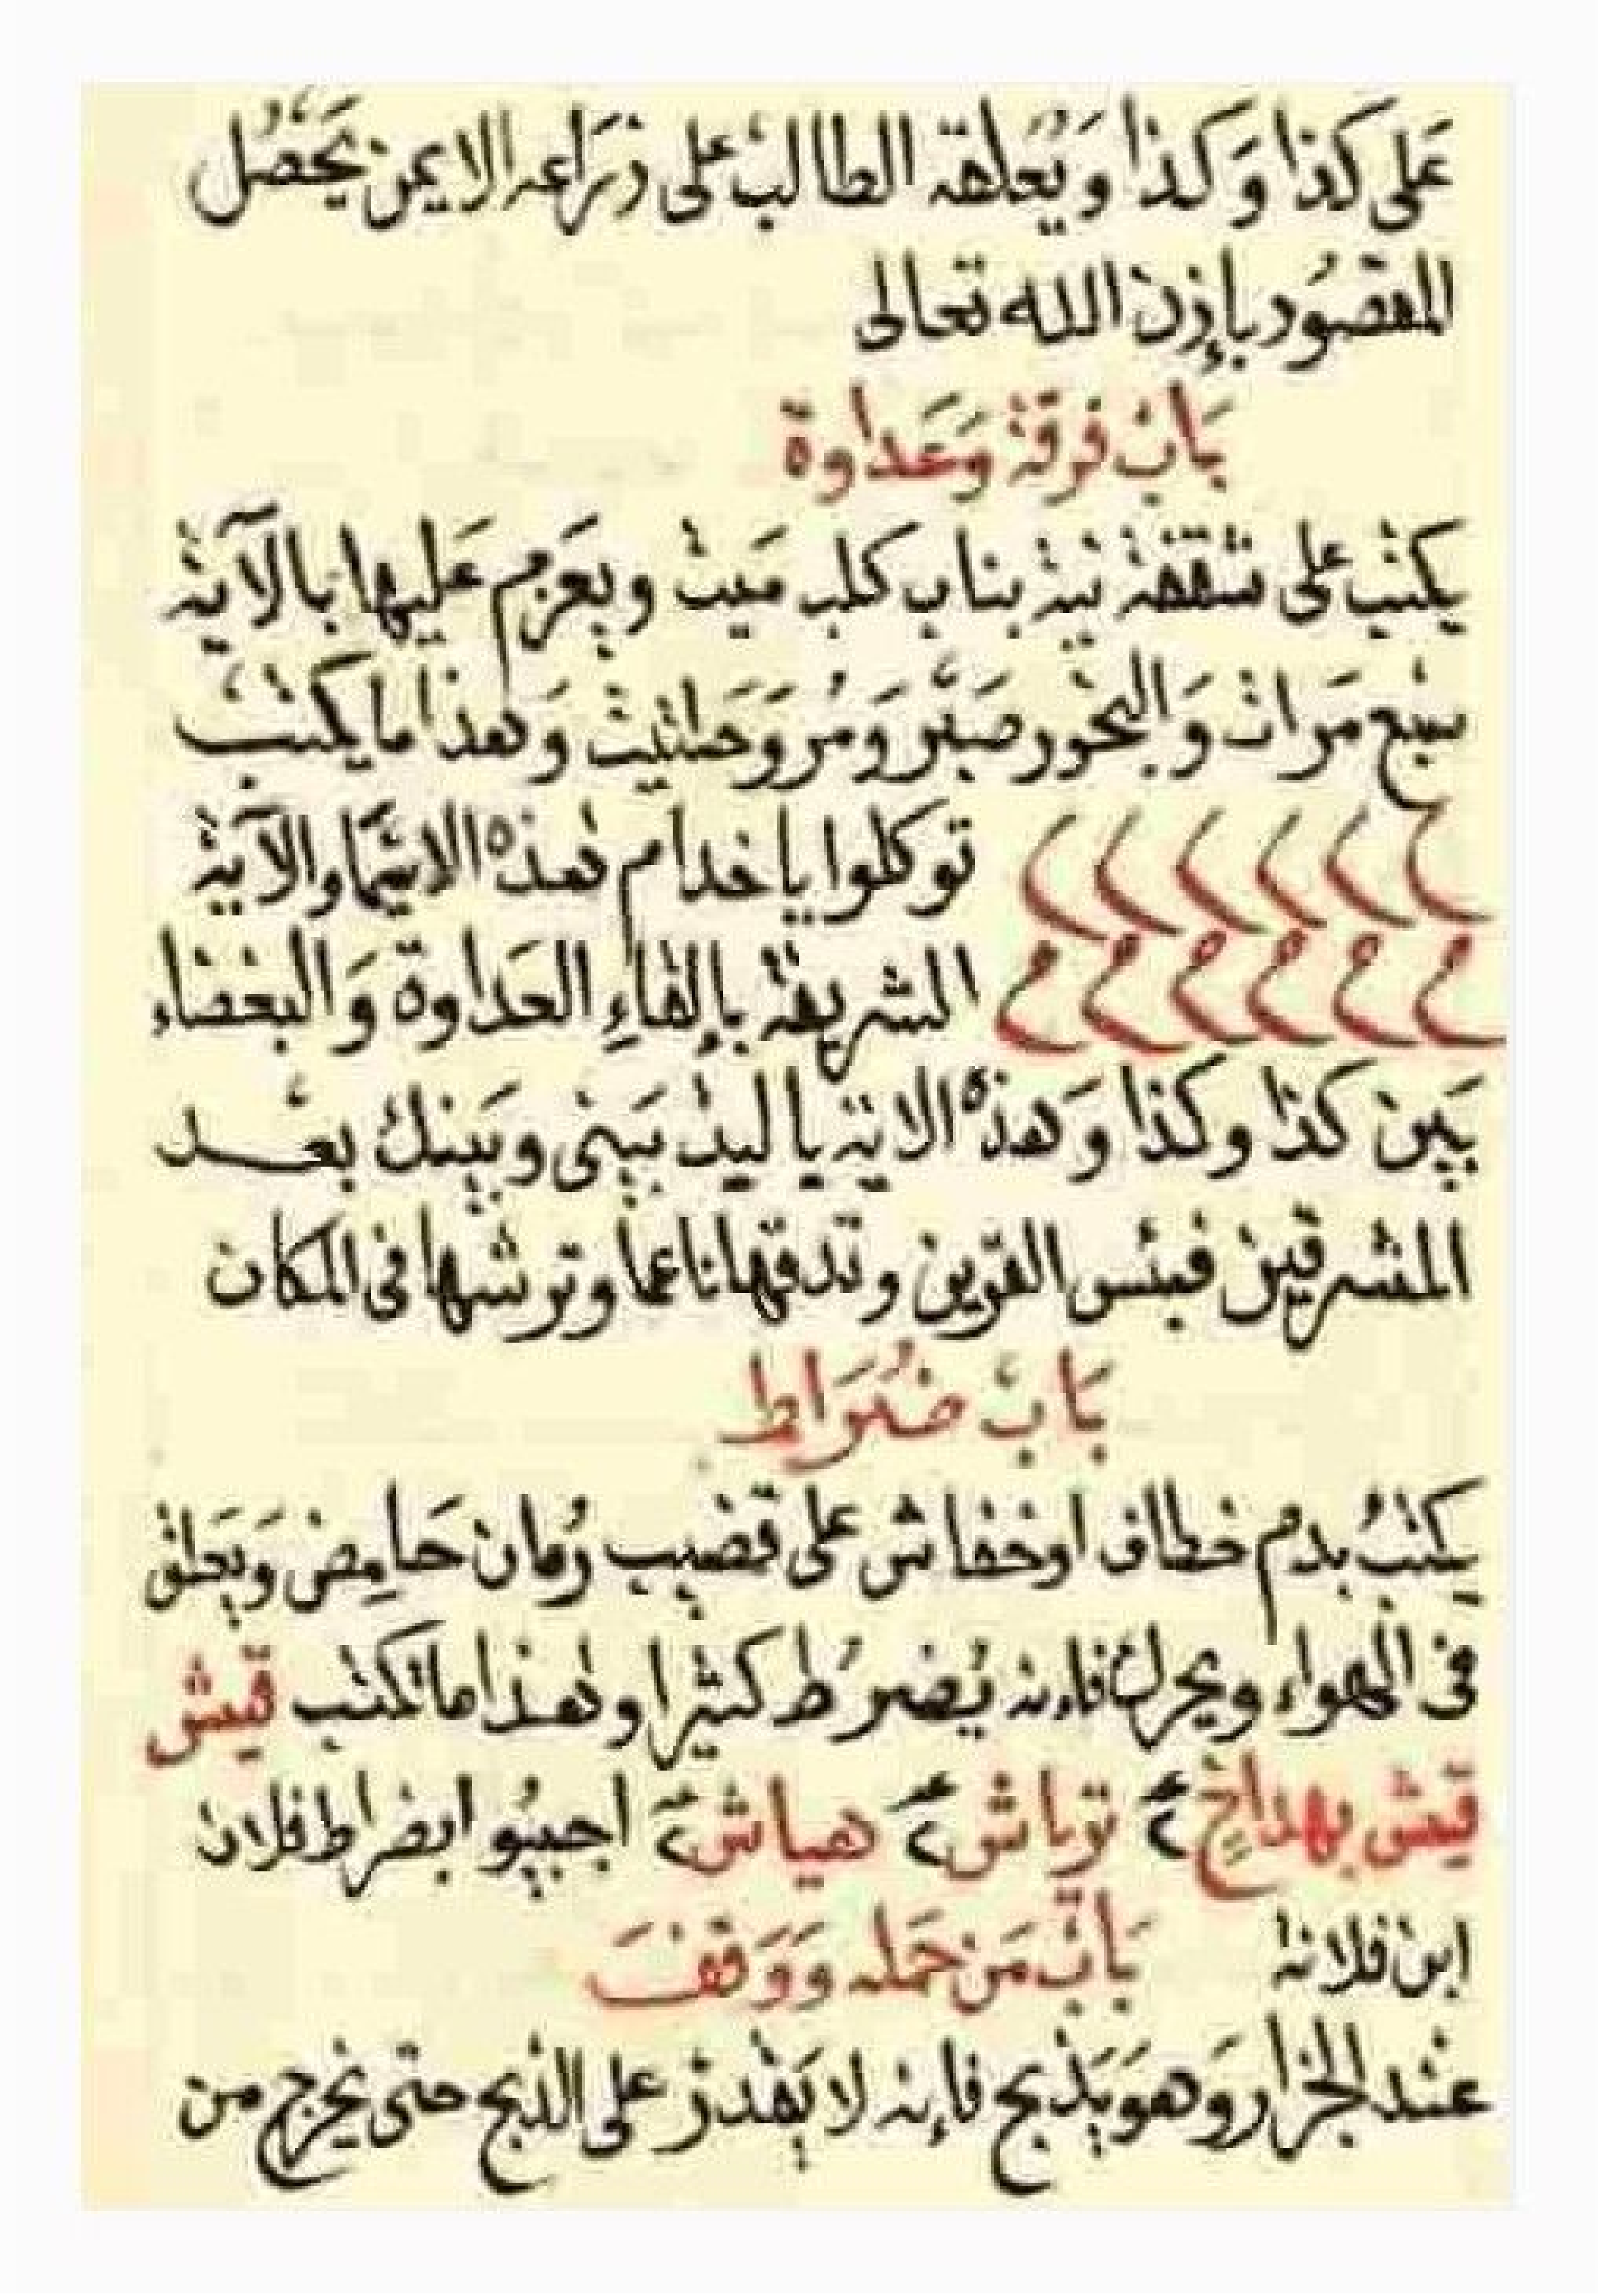 عَلى كَذا وَكَذا وَيُعلقه الطالب على ذِرَاعه الايمن يَحْصُل
المقصُود بإذن الله تعالى
بَابُ فرقة وَعَداوة
يكتب على شقفة نية بناب كلب مَيت ويعَزم عَليها بالآية
سبع مَرات وَالبخور صَبْر وَمُر وَحلتيت وَهذا ما يكتب
توكلوا يا خدام هذه الاسما والآية
الشريفة بإلقاءِ العَداوة وَالبغضاء
بَين كذا وكذا وَهذه الاية يا ليت بَينى وبَينك بعْد
المشرقين فبئس القرين وتدقها ناعما وترشها فى المكان
بَابُ ضُرَاط
يكتبُ بدم خطاف اوخفاش على قضيب رُمان حَامِض وَيعَلق
فى الهواء ويحرك فاءنه يَضرُط كثيرا وهذا ما تكتب قيش
قيش بهداخ ٢ توباش ٢ هياش ٢ اجيبُوا بضراط فلان
ابن فلانه بَابُ مَن حَمله وَوَقفَ
عند الجزار وَهوَ يَذبح فإنه لا يَقدر على الذبح حتى يخرج من